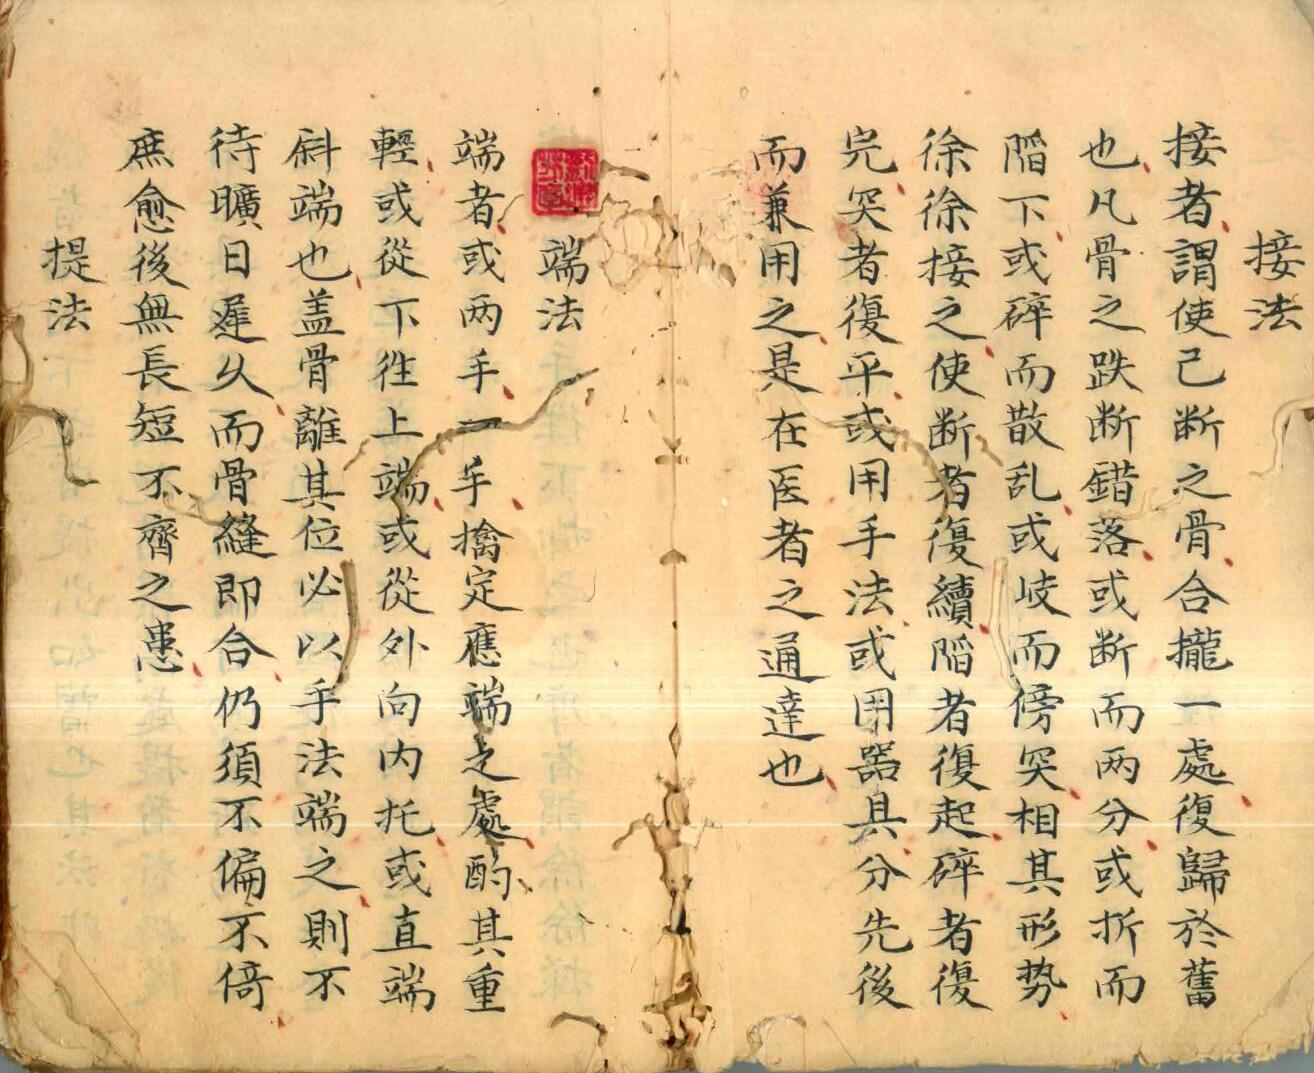 接法
接者謂使已断之骨合攏一處復歸於舊
也凡骨之跌断錯落或断而两分或折而
陷下或碎而散乱或歧而傍突相其形势
徐徐接之使断者復續陷者復起碎者復
完突者復平或用手法或用器具分先後
而兼用之是在医者之通達也
端法
端者或两手一手擒定應端之處酌其重
輕或從下徃上端或從外向内托或直端
斜端也盖骨離其位必以手法端之則不
待曠日遲久而骨縫即合仍須不偏不倚
庶愈後無長短不齊之患
提法